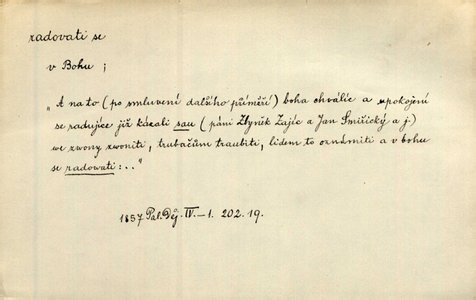 radovati se
v Bohu ;
„A na to (po smluvení dalšího příměří) boha chválíc a upokojení
se radujíce již kázali sau (páni Zbyněk Zajíc a Jan Smiřický a j.)
we zwony zwoniti, trubačům traubiti, lidem to oznámiti a v bohu
se radowati : . . "
1857 Pal. Děj. IV. – 1. 202. 19.